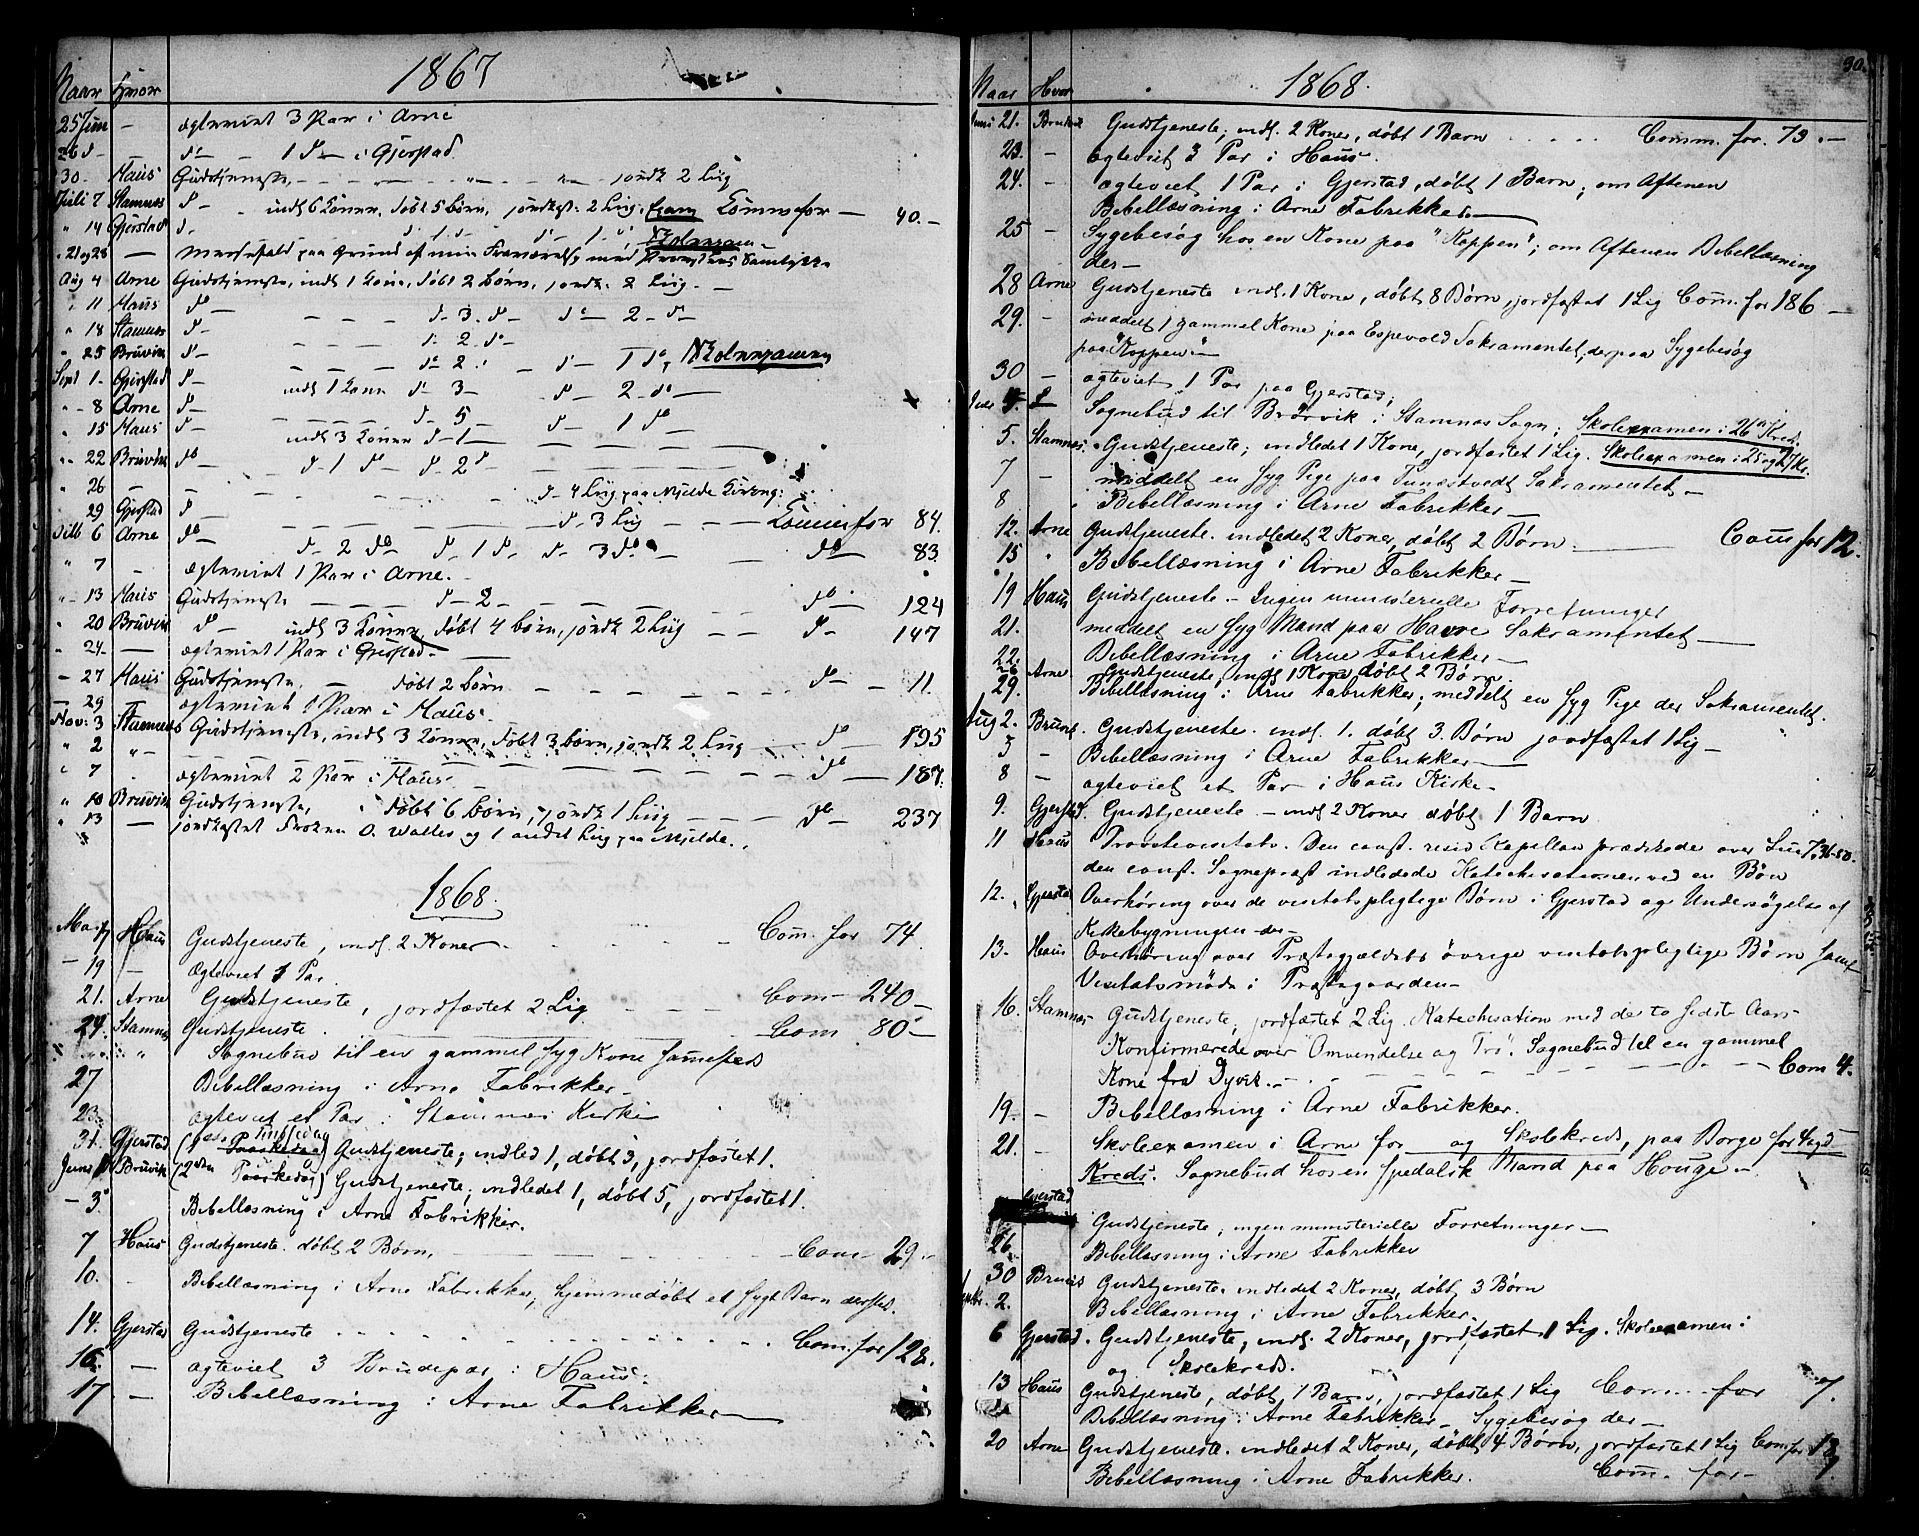 1867
Naar Hvor
25 Juni - ægteviet 3 Par i Arne
26 d - d - - 1 d - i Gjerstad
30 - Haus Gudstjeneste, - - - - - - jordf. 2 Lig
Juli 7 Stamnes d - - indl 6 Koner, døbt 5 børn, jordfæst. 2 Lig, Comm for - 40.-
" 14 Gjerstad d.
" 21 og 28 - Messefald paa Grund af min Fraværelse, med Samtykke
Aug 4 Arne Gudstjeneste, indl 1 Kone, døbt 2 børn, jordf. 2 Lig. -
" 11 Haus do - - - - d. 3. d - do - 2 - d -
" 18 Stamnes d - - - - d. 2. d -
" 25 Bruvik d - - - - - do 2. d - 1 do, Skoleexamen
Sept 1 - Gjerstad d - indl 1 Kone d - 3 - d - 2 - do -
" - 8 Arne d - - d - 5 d - 1 do
" 15 Haus d - indl 3 Koner d - 1 -
" 22 Bruvik do - d - 1 do - d - 2 d
" 26 - - - d - 4 Lig paa Mjelde
" 29 Gjerstad d - - - - d - 3 Lig - - - Comm for 84.
Octb 6 Arne do - d - 2 do d - 1 d - d - 3 do - do - 83.
" 7 - ægteviet 1 Par i Arne. -
" - 13 Haus Gudstjeneste - - - d - 2 - - - - do - 124
" 20 Bruvik d - indl 3 Koner, døbt 4 børn, jordf 2 Lig - - d - 147
" 24 - - ægteviet 1 Par i Gjerstad - -
- 27 Haus Gudstjeneste, - døbt 2 børn - - - - d - - 11.
- 29 ægteviet 1 Par i Haus.
Nov: 3 Stamnes Gudstjeneste, indl 3 Koner, døbt 3 børn, jordf 2 Lig - - d - 195
" 2 " - - - - - - - d - 187.
" 7 . ægteviet 2 Par i Haus.
" 10 Bruvik Gudstjeneste, døbt 6 børn, jordf 1 Lig - - - do - 237
" 13 - jordfæstet Frøken O. Walles og 1 andet Lig paa Mjelde.
1868.
Mai 17 Haus Gudstjeneste, indl. 2 Koner - - - - Com. for 74.
- 19 - Ægteviet 1 Par.
21. Arne Gudstjeneste, jordfæstet 2 Lig - - - Com - 240 -
24. Stamnes Gudstjeneste. - Com 80 -
" Sognebud til en gammel syg Kone sammesteds
27 Bibellæsning i Arne Fabrikker -
23. ægteviet et Par i Stamnes Kirke
31. Gjerstad (1ste Pinsedag) Gudstjeneste; indled 1, døbt 3, jordfæstet 1.
Juni 1 Bruvik (2den Paaskedag) Gudstjeneste; indledet 1, døbt 5, jordfæstet 1.
- 3. Bibellæsning i Arne Fabrikker.
7 Haus Gudstjeneste. døbt 2 Børn. - - - - Com - 29 -
10. - Bibellæsning i Arne Fabrikker, hjemmedøbt et sygt Barn dersted.
14. Gjerstad Gudstjeneste - - - - - Com. for 128.
16. - ægteviet 3 Brudepar i Haus.
17 - Bibellæsning i Arne Fabrikker -
30.
1868.
Naar Hvor
Juni 21. Bruvik Gudstjeneste; indl. 2 Koner, døbt 1 Barn . . . . . Comm. for. 73. -
23. - ægteviet 3 Par i Haus.
24. - ægteviet 1 Par i Gjerstad, døbt 1 Barn; om Aftenen
Bibellæsning i Arne Fabrikker -
25 - Sygebesøg hos en Kone paa "Koppen"; om Aftenen Bibellæsning
der -
28 Arne Gudstjeneste indl. 1 Kone, døbt 8 Børn, jordfæstet 1 Lig Com. for 186 -
29. - meddelt 1 gammel Kone paa Espevold Sakramentet, derpaa Sygebesøg
paa "Koppen" -
30 - ægteviet 1 Par paa Gjerstad;
Sognebud til i Stamnes Sogn; Skoleexamen i 26de Kred.
5. Stamnes. Gudstjeneste; indledet 1 Kone, jordfæstet 1 Lig. Skoleexamen i 25 og 27 Kr.
7 - meddelt en syg Pige paa Tunestvedt Sakramentet -
8 Bibellæsning i Arne Fabrikker -
12. Arne Gudstjeneste. indledet 2 Koner, døbt 2 Børn - Com for 12.
15 " Bibellæsning i Arne Fabrikker -
19 Haus Gudstjeneste - Ingen ministerielle Forretninger
21. meddelt en syg Mand paa Havre Sakramentet -
22. Bibellæsning i Arne Fabrikker -
26 Arne Gudstjeneste, indl 1 Kone døbt 2 Børn.
29. Bibellæsning i Arne Fabrikker; meddelt en syg Pige der Sakramentet.
Aug 2. Bruvik. Gudstjeneste. indl. 1. døbt 3. Børn jordfæstet 1 Lig -
5 - Bibellæsning i Arne Fabrikker -
8 - ægteviet et Par i Haus Kirke -
9. Gjerstad. Gudstjeneste - indl 2 Koner døbt 1 Barn
11 Haus Provstevisitats. Den const. resid. Kapellan prædikede over Luc 7, 36-50.
den const. Sognepræst indledede Katechisationen ved en Bøn
12. Gjerstad Overhøring over de visitatspligtige Børn i Gjerstad og Undersøgelse af
Kirkebygningen der -
13. Haus Overhøring over Præstegjældets øvrige visitatspligtige Børn samt
Visitatsmøde i Præstegaarden -
16. Stamnes Gudstjeneste; jordfæstet 2 Lig. Katechisation med de to sidste Aars
Konfirmerede over "Omvendelse og Tro". Sognebud til en gammel
Kone fra Dyvik. - - - - - - Com 4.
19. - Bibellæsning i Arne Fabrikker.
21. - Skoleexamen i Arne for og Skolekreds, paa Borge for
Kreds. Sognebud hos en spedalsk Mand paa Houge -
Gjerstad Gudstjeneste; ingen ministerielle Forretninger -
26. Bibellæsning i Arne Fabrikker
30 Bruvik Gudstjeneste. indledet 2 Koner, døbt 3 Børn
Septbr. 2. Bibellæsning i Arne Fabrikker.
6 Gjerstad. Gudstjeneste, indl. 2 Koner, jordfæstet 1 Lig. Skoleexamen i
og Skolekreds.
13 Haus Gudstjeneste, døbt 1 Barn, jordfæstet 1 Lig Com. for 7.
Bibellæsning i Arne Fabrikker - Sygebesøg der -
20 Arne Gudstjeneste. indledet 2 Koner, døbt 4 Børn, jordfæstet 1 Lig Com for 13
Bibellæsning i Arne Fabrikker. Com. for -